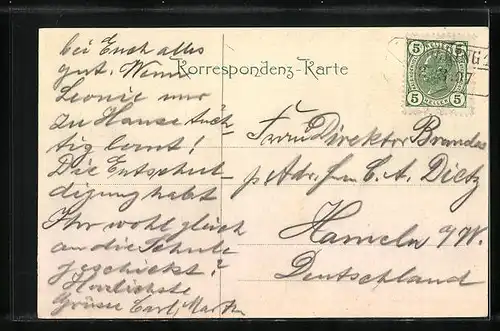 bei Euch alles
gut. Wenn
Leonie nur
zu Hause tüch-
tig lernt!
Die Entschul-
digung habt
Ihr wohl gleich
an die Schule
geschickt?
Herzlichste
Grüsse Carl, Martha
Korrespondenz-Karte
5 5
HELLER
5 5
07
Frau Direktor Brandes
p. Adr. Hrn C. A. Dietz
Hameln a/W.
Deutschland